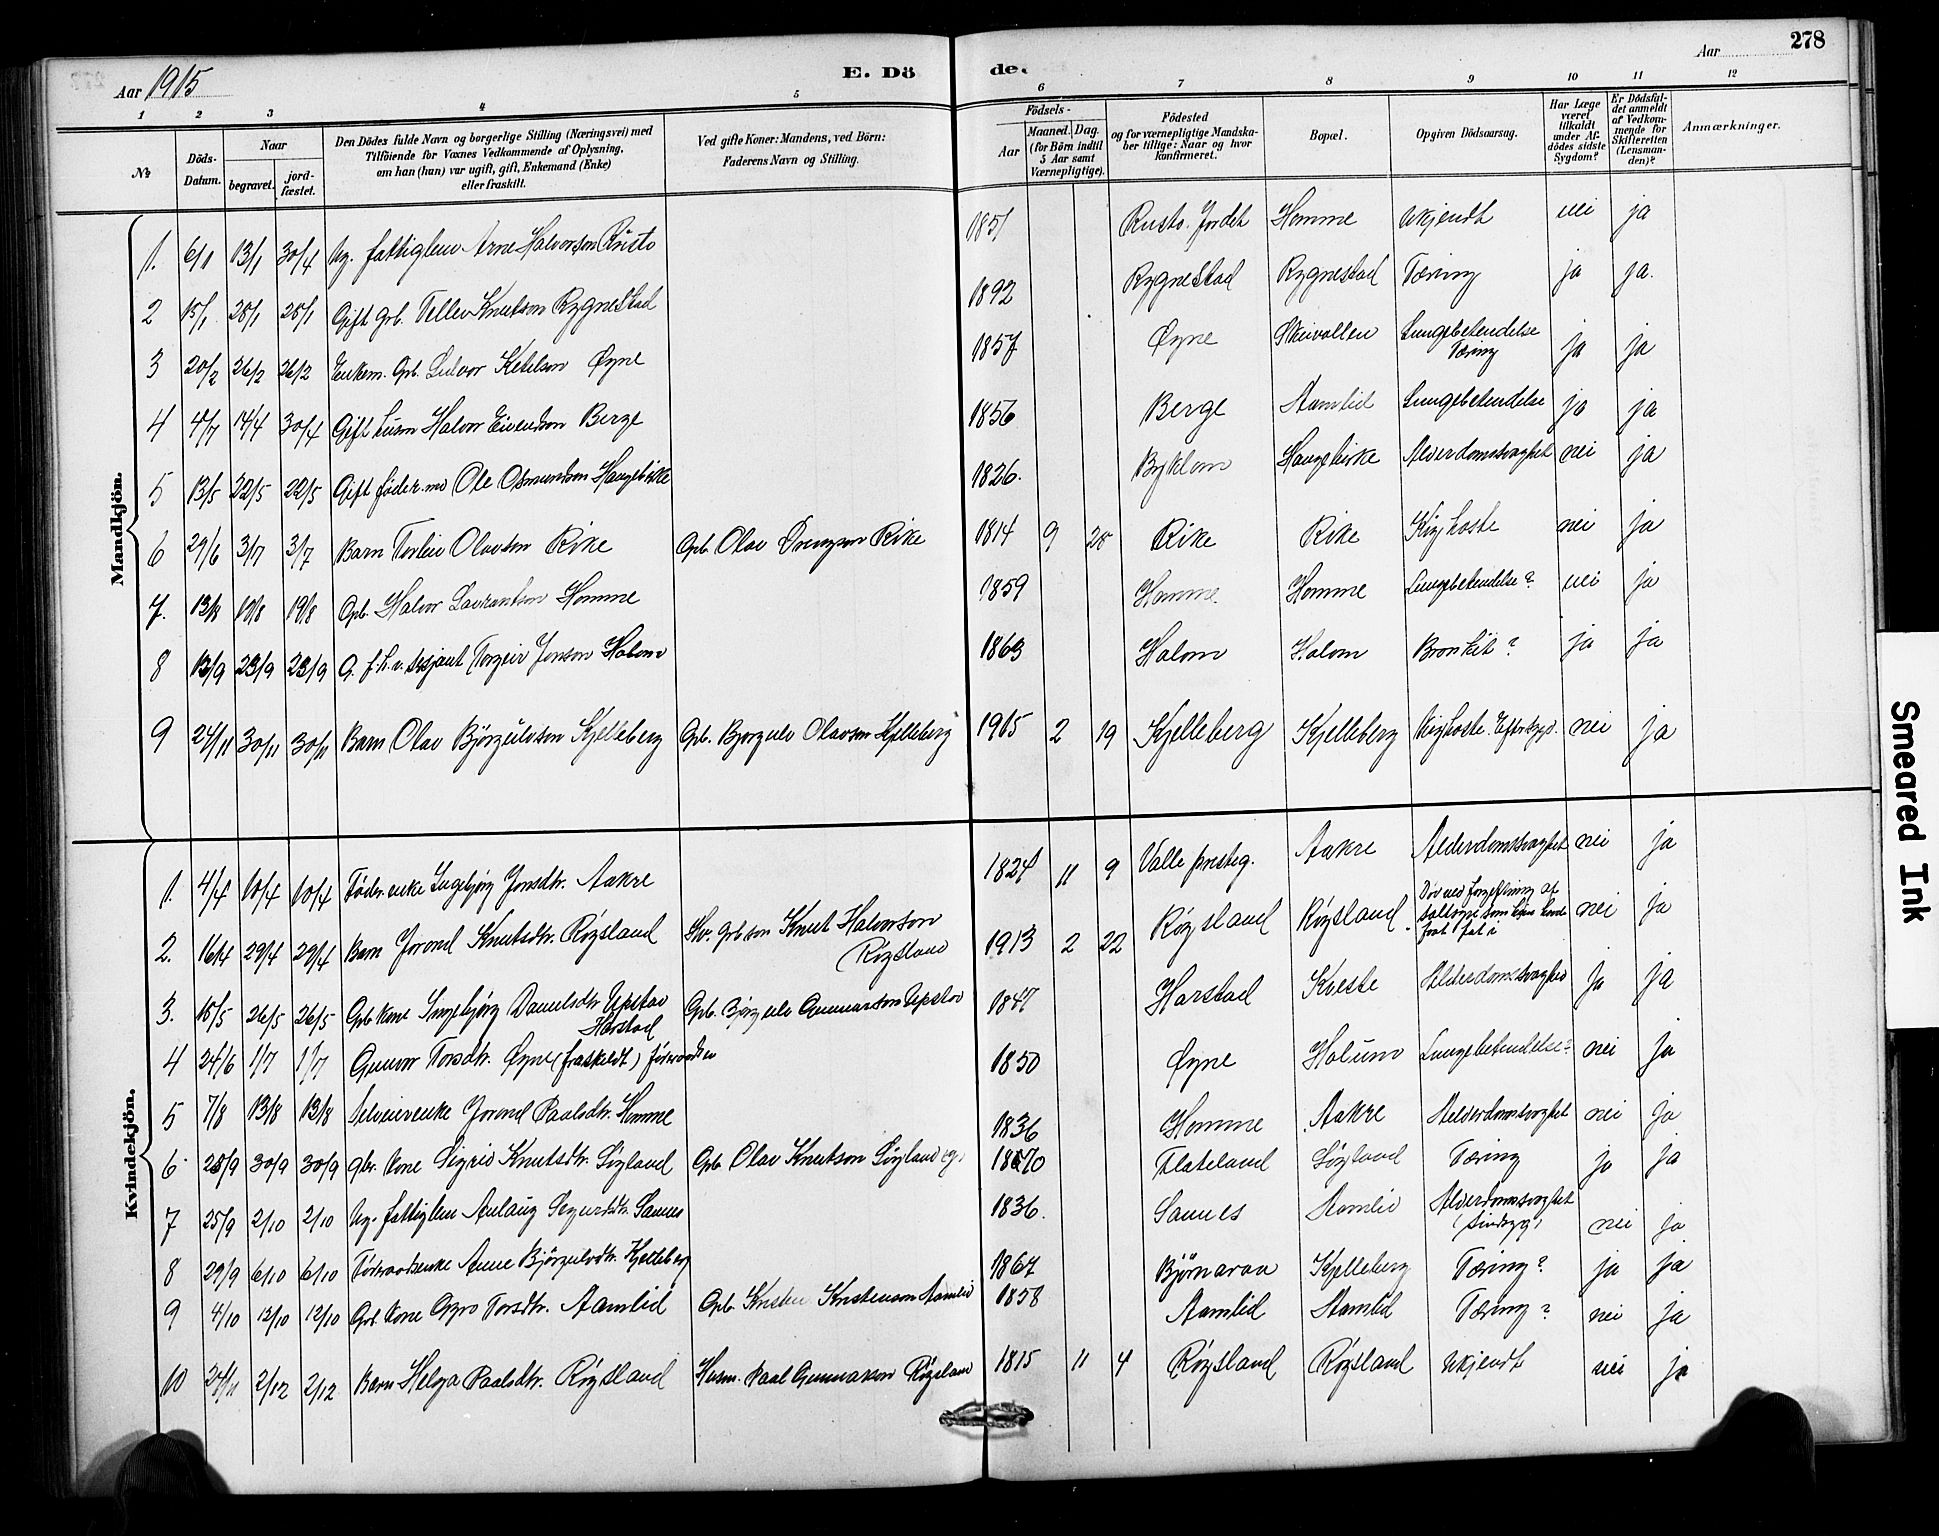 278
Aar 1915
E. Dö
de.
Aar
1 2 3 4 5 6 7 8 9 10 11 12
№
Döds-Datum.
Naar
begravet.
jord-fæstet.
Den Dödes fulde Navn og borgerlige Stilling (Næringsvei) med
Tilföiende for Voxnes Vedkommende af Oplysning,
om han (hun) var ugift, gift, Enkemand (Enke)
eller fraskilt.
Ved gifte Koner: Mandens, ved Börn:
Faderens Navn og Stilling.
Födsels-
Aar
Maaned. Dag.
(for Börn indtil
5 Aar samt
Værnepligtige).
Födested
og for værnepligtige Mandska-
ber tillige: Naar og hvor
konfirmeret.
Bopæl.
Opgiven Dödsaarsag.
Har Læge
været
tilkaldt
under Af-
dödes sidste
Sygdom?
Er Dödsfal-
det anmeldt
af Vedkom-
mende for
Skifteretten
(Lensman-
den)?
Anmærkninger.
Mandkjön.
1. 6/1 13/1 30/4 Ug. fattiglem Arne Halvorson Rusto 1851 Rusto. Jordet Homme Ukjendt nei ja
2 15/1 28/1 28/1 Gift Grb. Tellev Knutson Rygnestad 1892 Rygnestad Rygnestad Tæring ja ja.
3 20/2 26/2 26/2 Enkem. Grb. Ketilson Øyne 1857 Øyne Skeivollen Lungebetendelse Tæring ja ja
4 14/4 30/4 Gift husm Halvor Eivendson Berge 1856 Berge Aamlid Lungebetendelse ja ja
5 13/5 22/5 22/5 Gift föder.md Ole Osmundson Haugebirke 1826. Byklom Haugebirke Alderdomsvaghet nei ja
6 29/6 3/7 3/7 Barn Torleiv Olavson Rike Grb. Olav Drengson Rike 1814 9 28 Rike Rike Kighoste nei ja
7. 13/8 19/8 19/8 Grb. Halvor Lavrantson Homme 1859 Homme Homme Lungebetendelse? nei ja
8 13/9 23/9 23/9 G. f.h.v. sersjant Torgeir Jonson Halom 1863 Halom Halom Bronkit? ja ja
9 24/11 30/11 30/11 Barn Olav Björgulvson Kjelleberg Grb. Bjorgulv Olavson Kjelleberg 1915 2 19 Kjelleberg Kjelleberg Kighoste. Eftersygd. nei ja
Kvindekjön.
1. 4/4 10/4 10/4 Föder.enke Ingebjörg Jonsdtr. Aakre 1824 11 9 Valle presteg. Aakre Alderdomsvaghet nei ja
2. 16/4 29/4 29/4 Barn Jorond Knutsdtr. Rögsland Sv. Grb.son Knut Halvorson Rögsland 1913 2 22 Rögsland Rögsland Död ved forgiftning af saltsyre som hun hadde faat fat i nei ja
3. 18/5 26/5 26/5 Grb kone Ingebjörg Danielsdtr Upstad Harstad Grb. Björgulv Gunnarson Upstad 1847 Harstad Kveste Alderdomsvaghed ja ja
4 24/6 1/7 1/7 Gunvor Torsdtr. Øyne (fraskeldt) 1850 Øyne Holum Lungebetendelse? nei ja
5 7/8 13/8 13/8 Selveierenke Jorond Paalsdtr. Homme 1836 Homme Aakre Alderdomsvaghet nei ja
6 28/9 30/9 30/9 Gbr. kone Sigrid Knutsdtr. Lögland Grb. Olav Knutson Lögland 1870 Flateland Lögland Tæring ja ja
7 25/9 2/10 2/10 Ug. fattiglem Anlaug Sigurdsdtr. Sannes 1836. Sannes Aamlid Alderdomsvaghet (sindsyg) nei ja
8 29/9 6/10 6/10 Föderaadsenke Anne Björgulvdtr. Kjelleberg 1867 Björnaraa Kjelleberg Tæring? ja ja
9 4/10 12/10 12/10 Grb. kone Gyro Torsdtr. Aamlid Grb. Kristen Kristenson Aamlid 1858 Aamlid Aamlid Tæring? nei ja
10 24/11 2/12 2/12 Barn Helga Paalsdtr. Rögsland Husm. Paal Gunnarson Rögsland 1815 11 4 Rögsland Rögsland Ukjendt nei ja
Smeared Ink